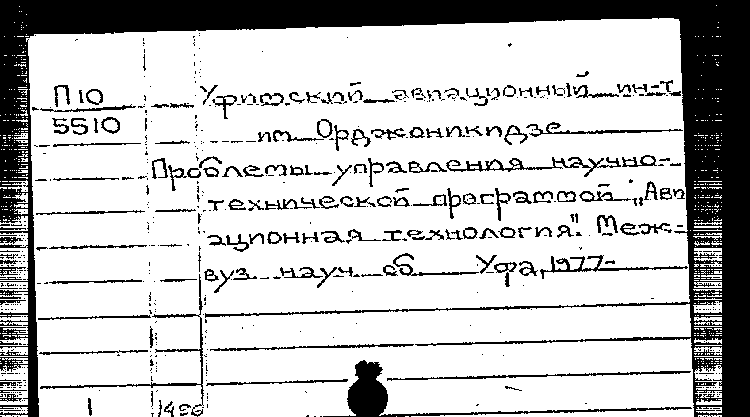 П10 Уфимский авиационный ин-т
5510 им. Орджоникидзе
Проблемы управления научно-
технической программой „Ави
ационная технология". Меж-
вуз. науч. сб. Уфа, 1977-
1 1486